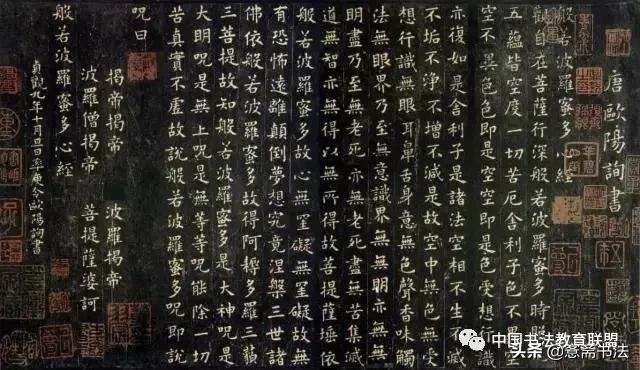 唐歐陽詢書
般若波羅蜜多心經
觀自在菩薩行深般若波羅蜜多時照
五蘊皆空度一切苦厄舍利子色不異空
空不異色色即是空空即是色受想行識
亦復如是舍利子是諸法空相不生不滅
不垢不淨不增不減是故空中無色無受
想行識無眼耳鼻舌身意無色聲香味觸
法無眼界乃至無意識界無無明亦無無
明盡乃至無老死亦無老死盡無苦集滅
道無智亦無得以無所得故菩提薩埵依
般若波羅蜜多故心無罣礙無罣礙故無
有恐怖遠離顛倒夢想究竟涅槃三世諸
佛依般若波羅蜜多故得阿耨多羅三藐
三菩提故知般若波羅蜜多是大神咒是
大明咒是無上咒是無等等咒能除一切
苦真實不虛故說般若波羅蜜多咒即說
咒曰
揭帝揭帝 波羅揭帝
波羅僧揭帝 菩提薩婆訶
般若波羅蜜多心經
貞觀九年十月旦日率更令歐陽詢書
中国书法教育联盟
头条 @意斋书法